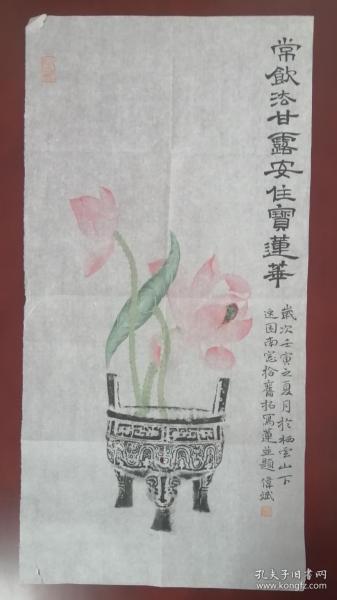 常飲法甘露安住寶蓮華
歲次壬寅之夏月於栖雲山下
迷因南窗拾舊拓寫蓮並題 偉斌
孔夫子旧书网
www.kongfz.com